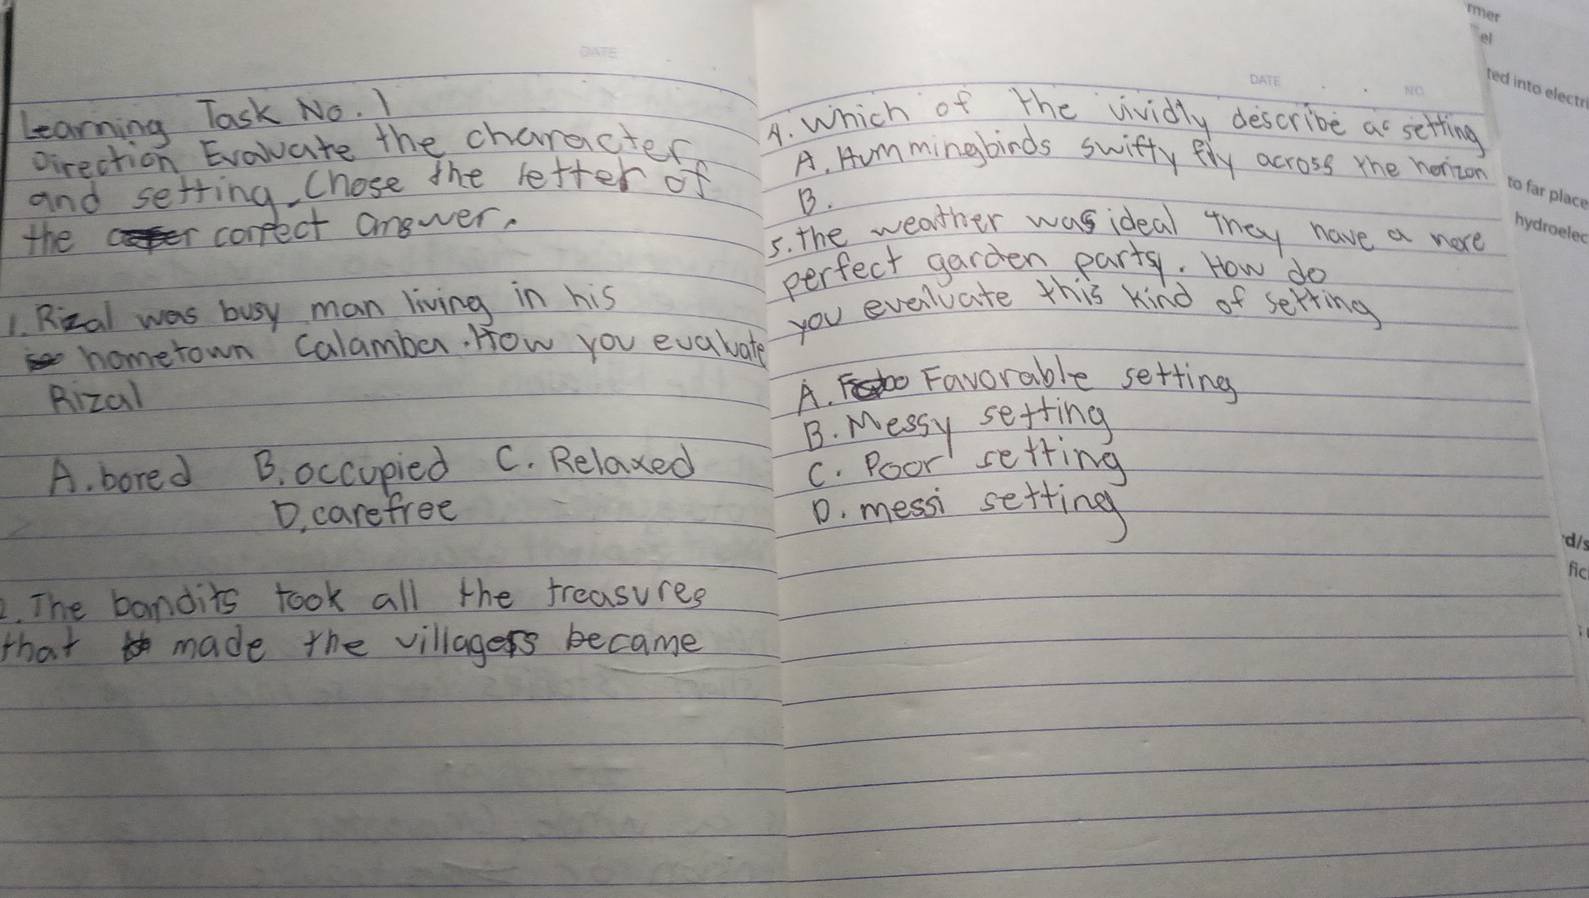 DATE
Learning Task No. 1
Direction Evaluate the character
and setting. Chose the letter of
the correct answer.
1. Rizal was busy man living in his
hometown Calamba. How you evaluate
Rizal
A. bored B. occupied C. Relaxed
D. carefree
2. The bandits took all the treasures
that made the villagers became
DATE NO
4. Which of the vividly describe as setting
A. Hummingbirds swifty fly across the horizon
B.
5. the weather was ideal they have a more
perfect garden party. How do
you evenluate this kind of setting
A. Favorable setting
B. Messy setting
C. Poor setting
D. messi setting
rmer
el
ted into electri
to far place
hydroelec
d/s
fic